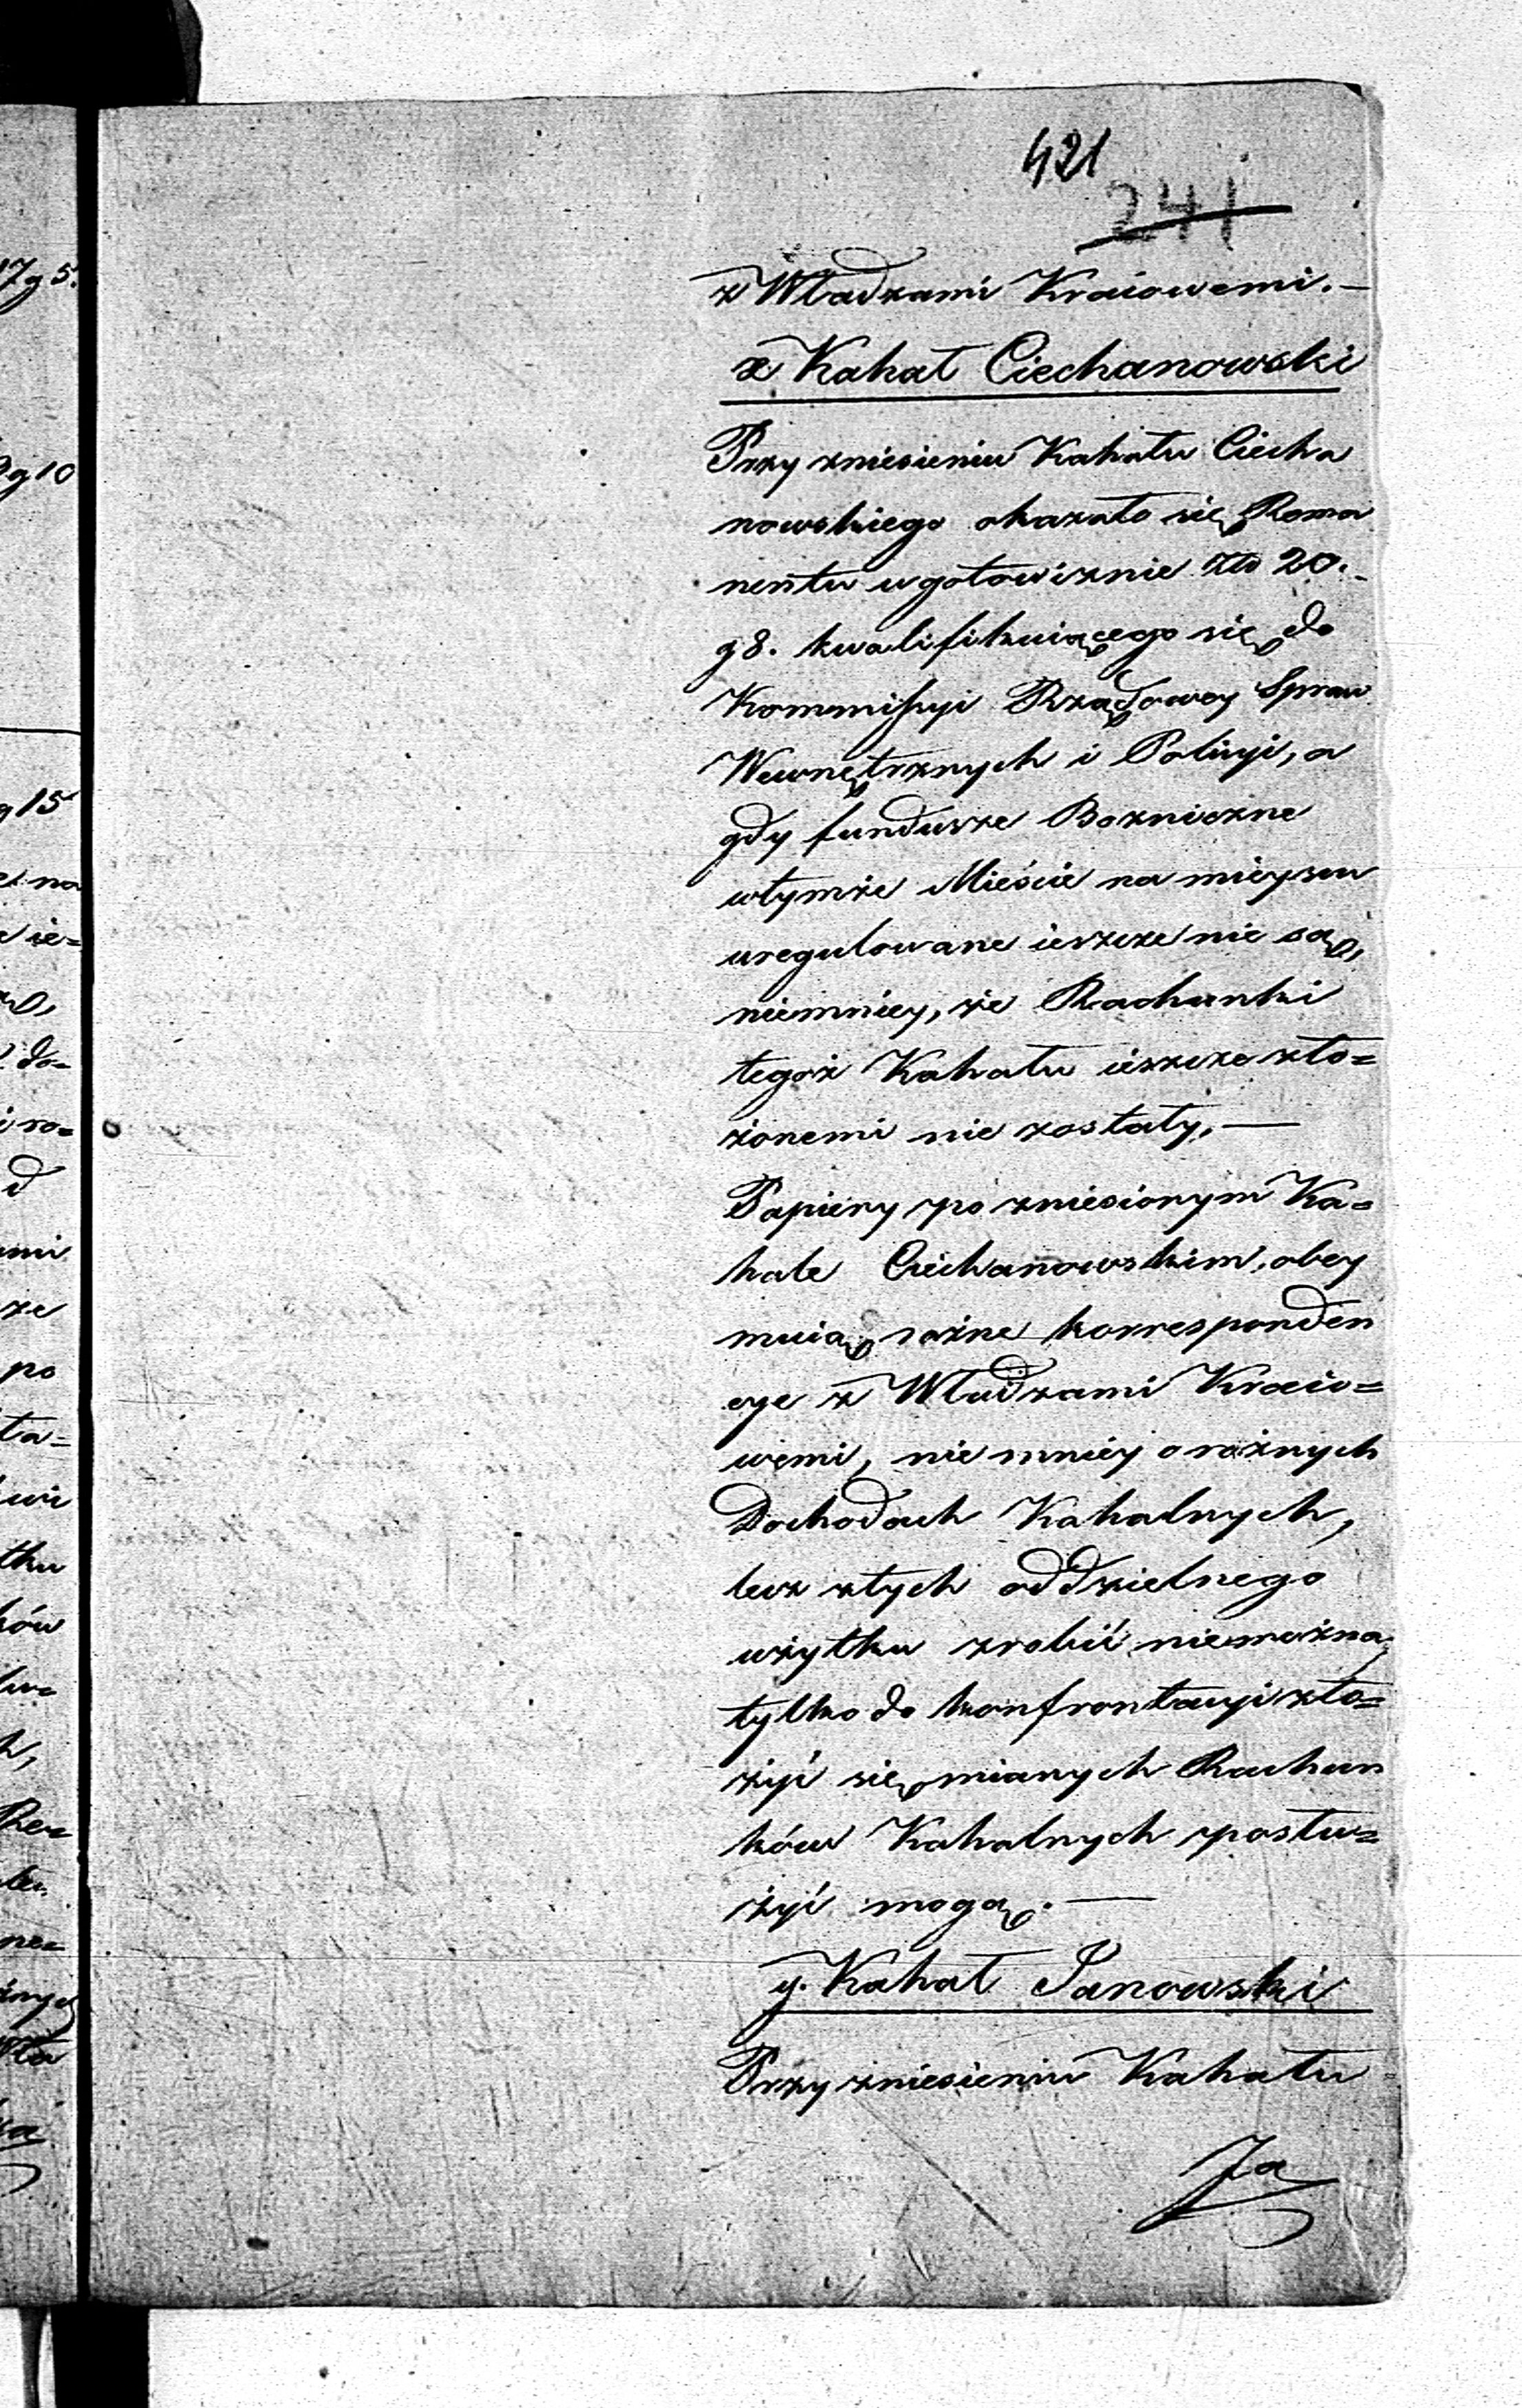 421
241
z Władzami Kraiowemi.—
x Kahał Ciechanowski
Przy zniesieniu Kahału Ciecha
nowskiego okazało się Roma
nentu w gotowiznie Zło 20.
g 8. kwalifikuiącego się do
Kommissyi Rządowey Spraw
Wewnętrznych i Policyi, a
gdy fundusze Bozniczne
wtymże Mieście na mieyscu
uregulowane ieszcze nie są,
niemniey, że Rachunki
tegoż Kahału ieszcze zło=
żonemi nie zostały,—
Papiery po zniesionym Ka=
hale Ciechanowskim, obey
muią rożne korresponden
cye z Władzami Kraio=
wemi, nie mniey o rożnych
Dochodach Kahalnych,
lecz ztych oddzielnego
użytku zrobić niemożna,
tylko do konfrontacyi zło=
żyć się mianych Rachun
ków Kahalnych posłu=
żyć mogą.—
y. Kahał Janowski
Przy zniesieniu Kahału
Ja
17 g 5.
g 10
g 15
na
ie=
do=
ro=
d
ami
ze
po
ta=
wi
tku
ków